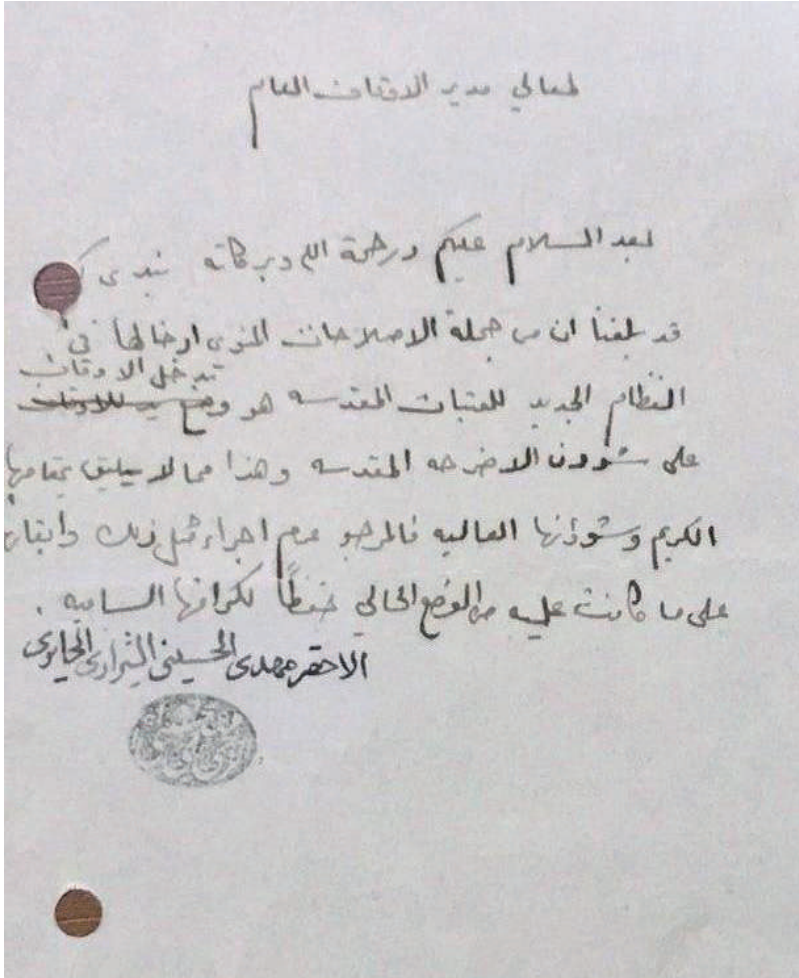 لمعالي مدير الاوقاف العام
بعد السلام عليكم ورحمة الله وبركاته نبدي
قد بلغنا ان من جملة الاصلاحات المنوى ادخالها في
تدخل الاوقاف
النظام الجديد للعتبات المقدسه هو وضع يد للاوقاف
على شوون الاضرحه المقدسه وهذا مما لا يليق بمقامها
الكريم وشوؤنها العاليه فالمرجو عدم اجراء مثل ذلك وابقاء
على ما كانت عليه من الوضع الحالي حفظاً لكرامتها الساميه .
الاحقر مهدي الحسيني الشيرازي الحايري